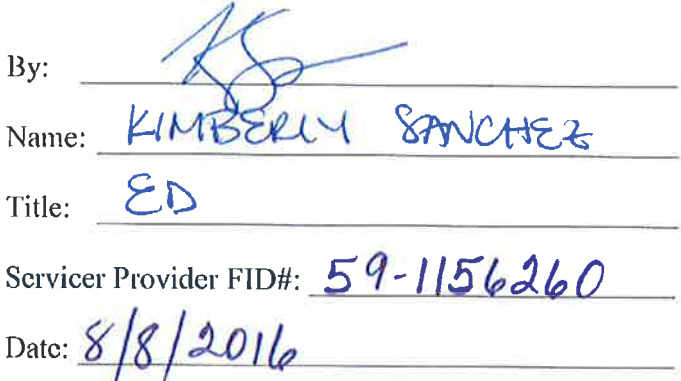 By:
Name: KIMBERLY SANCHEZ
Title: ED
Servicer Provider FID#: 59-1156260
Date: 8/8/2016